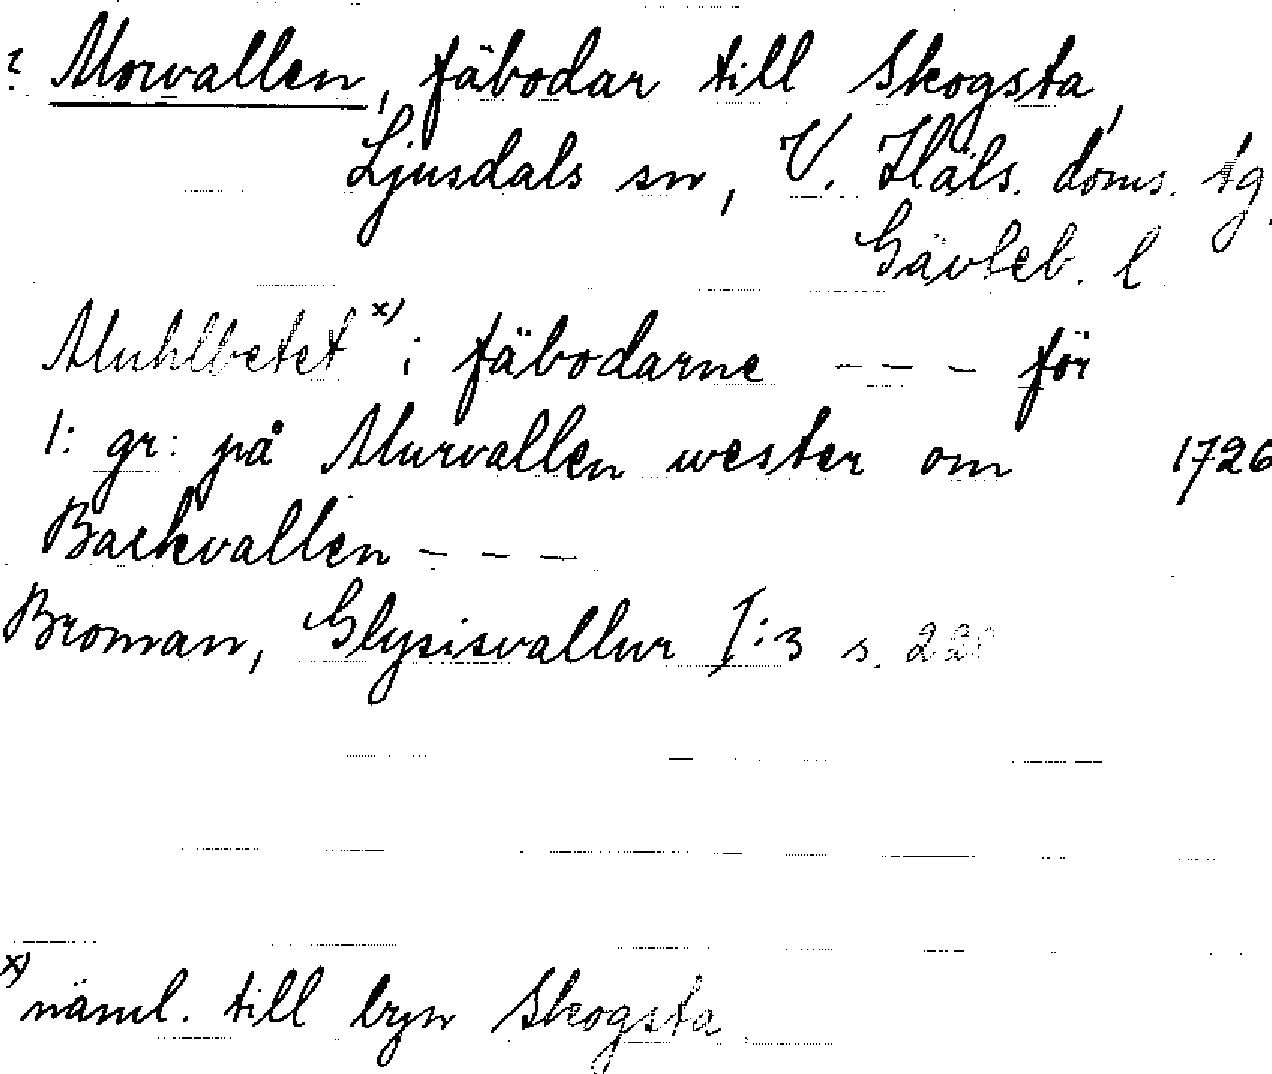 ? Morvallen, fäbodar till Skogsta,
Ljusdals sn, V. Häls. doms. sg.
Gävleb. l
Muhlbetet x) i fäbodarne - - - för
1: gr: på Murvallen wester om 1726
Backvallen - - -
Broman, Glysisvallur I:3 s. 220
x) näml. till byn Skogsta